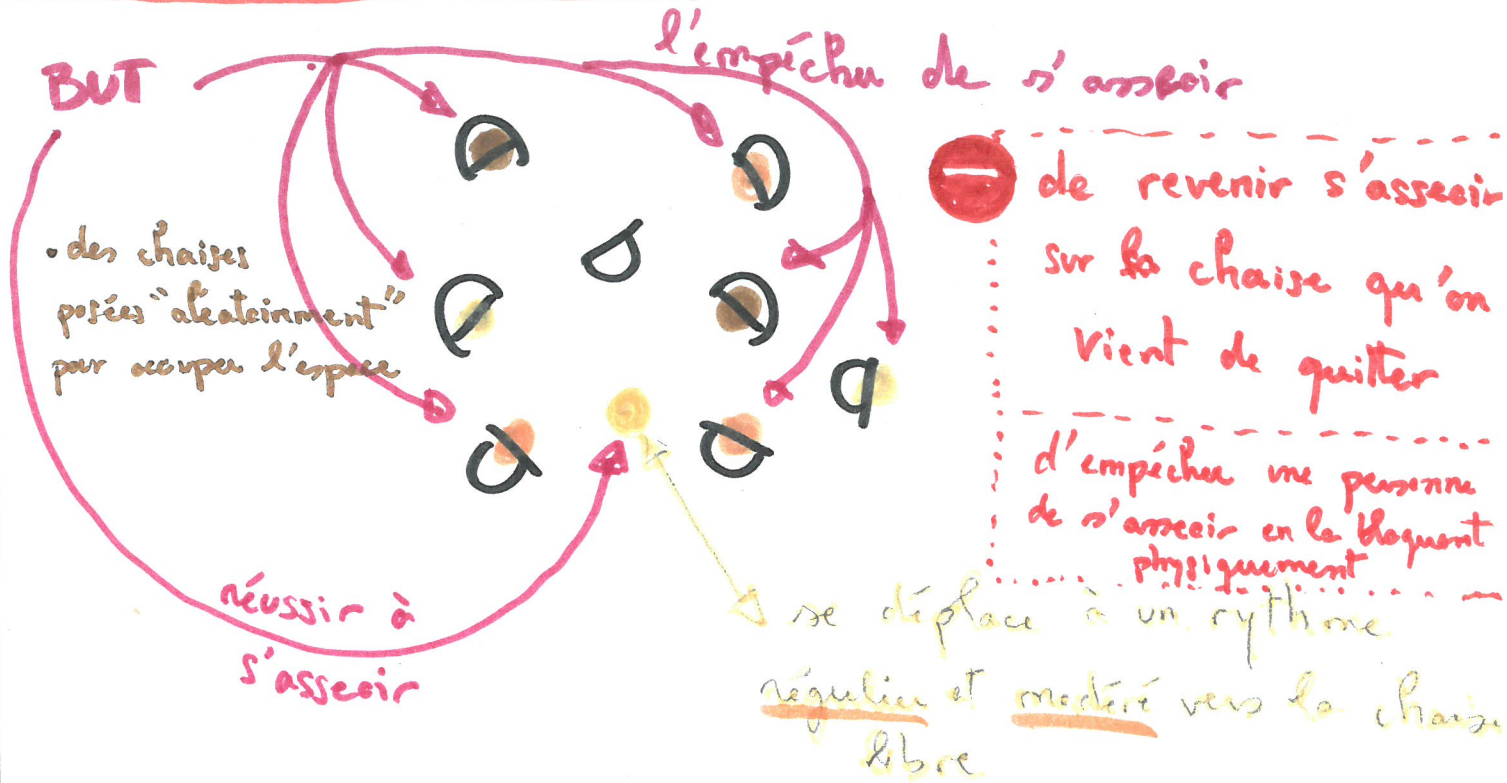 BUT
l'empêcher de s'asseoir
• des chaises
posées "aléatoirement"
pour occuper l'espace
de revenir s'asseoir
sur la chaise qu'on
vient de quitter
d'empêcher une personne
de s'asseoir en la bloquant
physiquement
réussir à
s'asseoir
se déplace à un rythme
régulier et modéré vers la chaise
libre